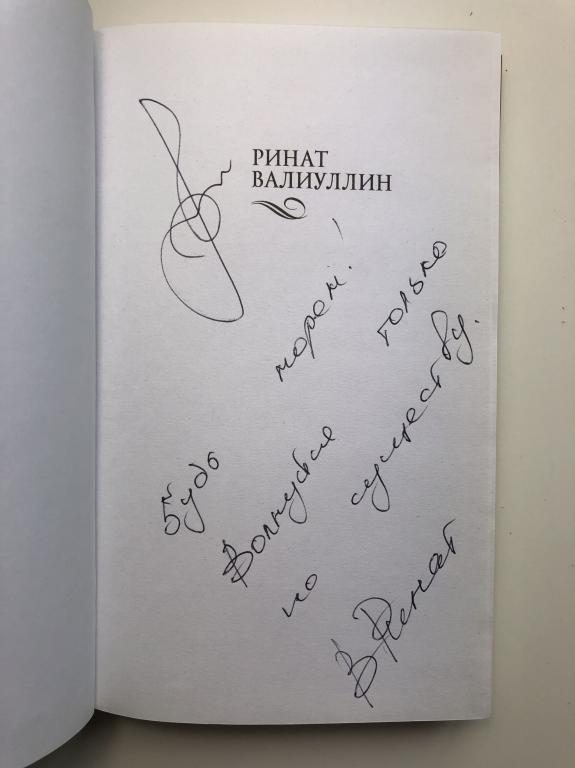 РИНАТ
ВАЛИУЛЛИН
Будь морем!
Волнуйся только
по существу.
В Ринат